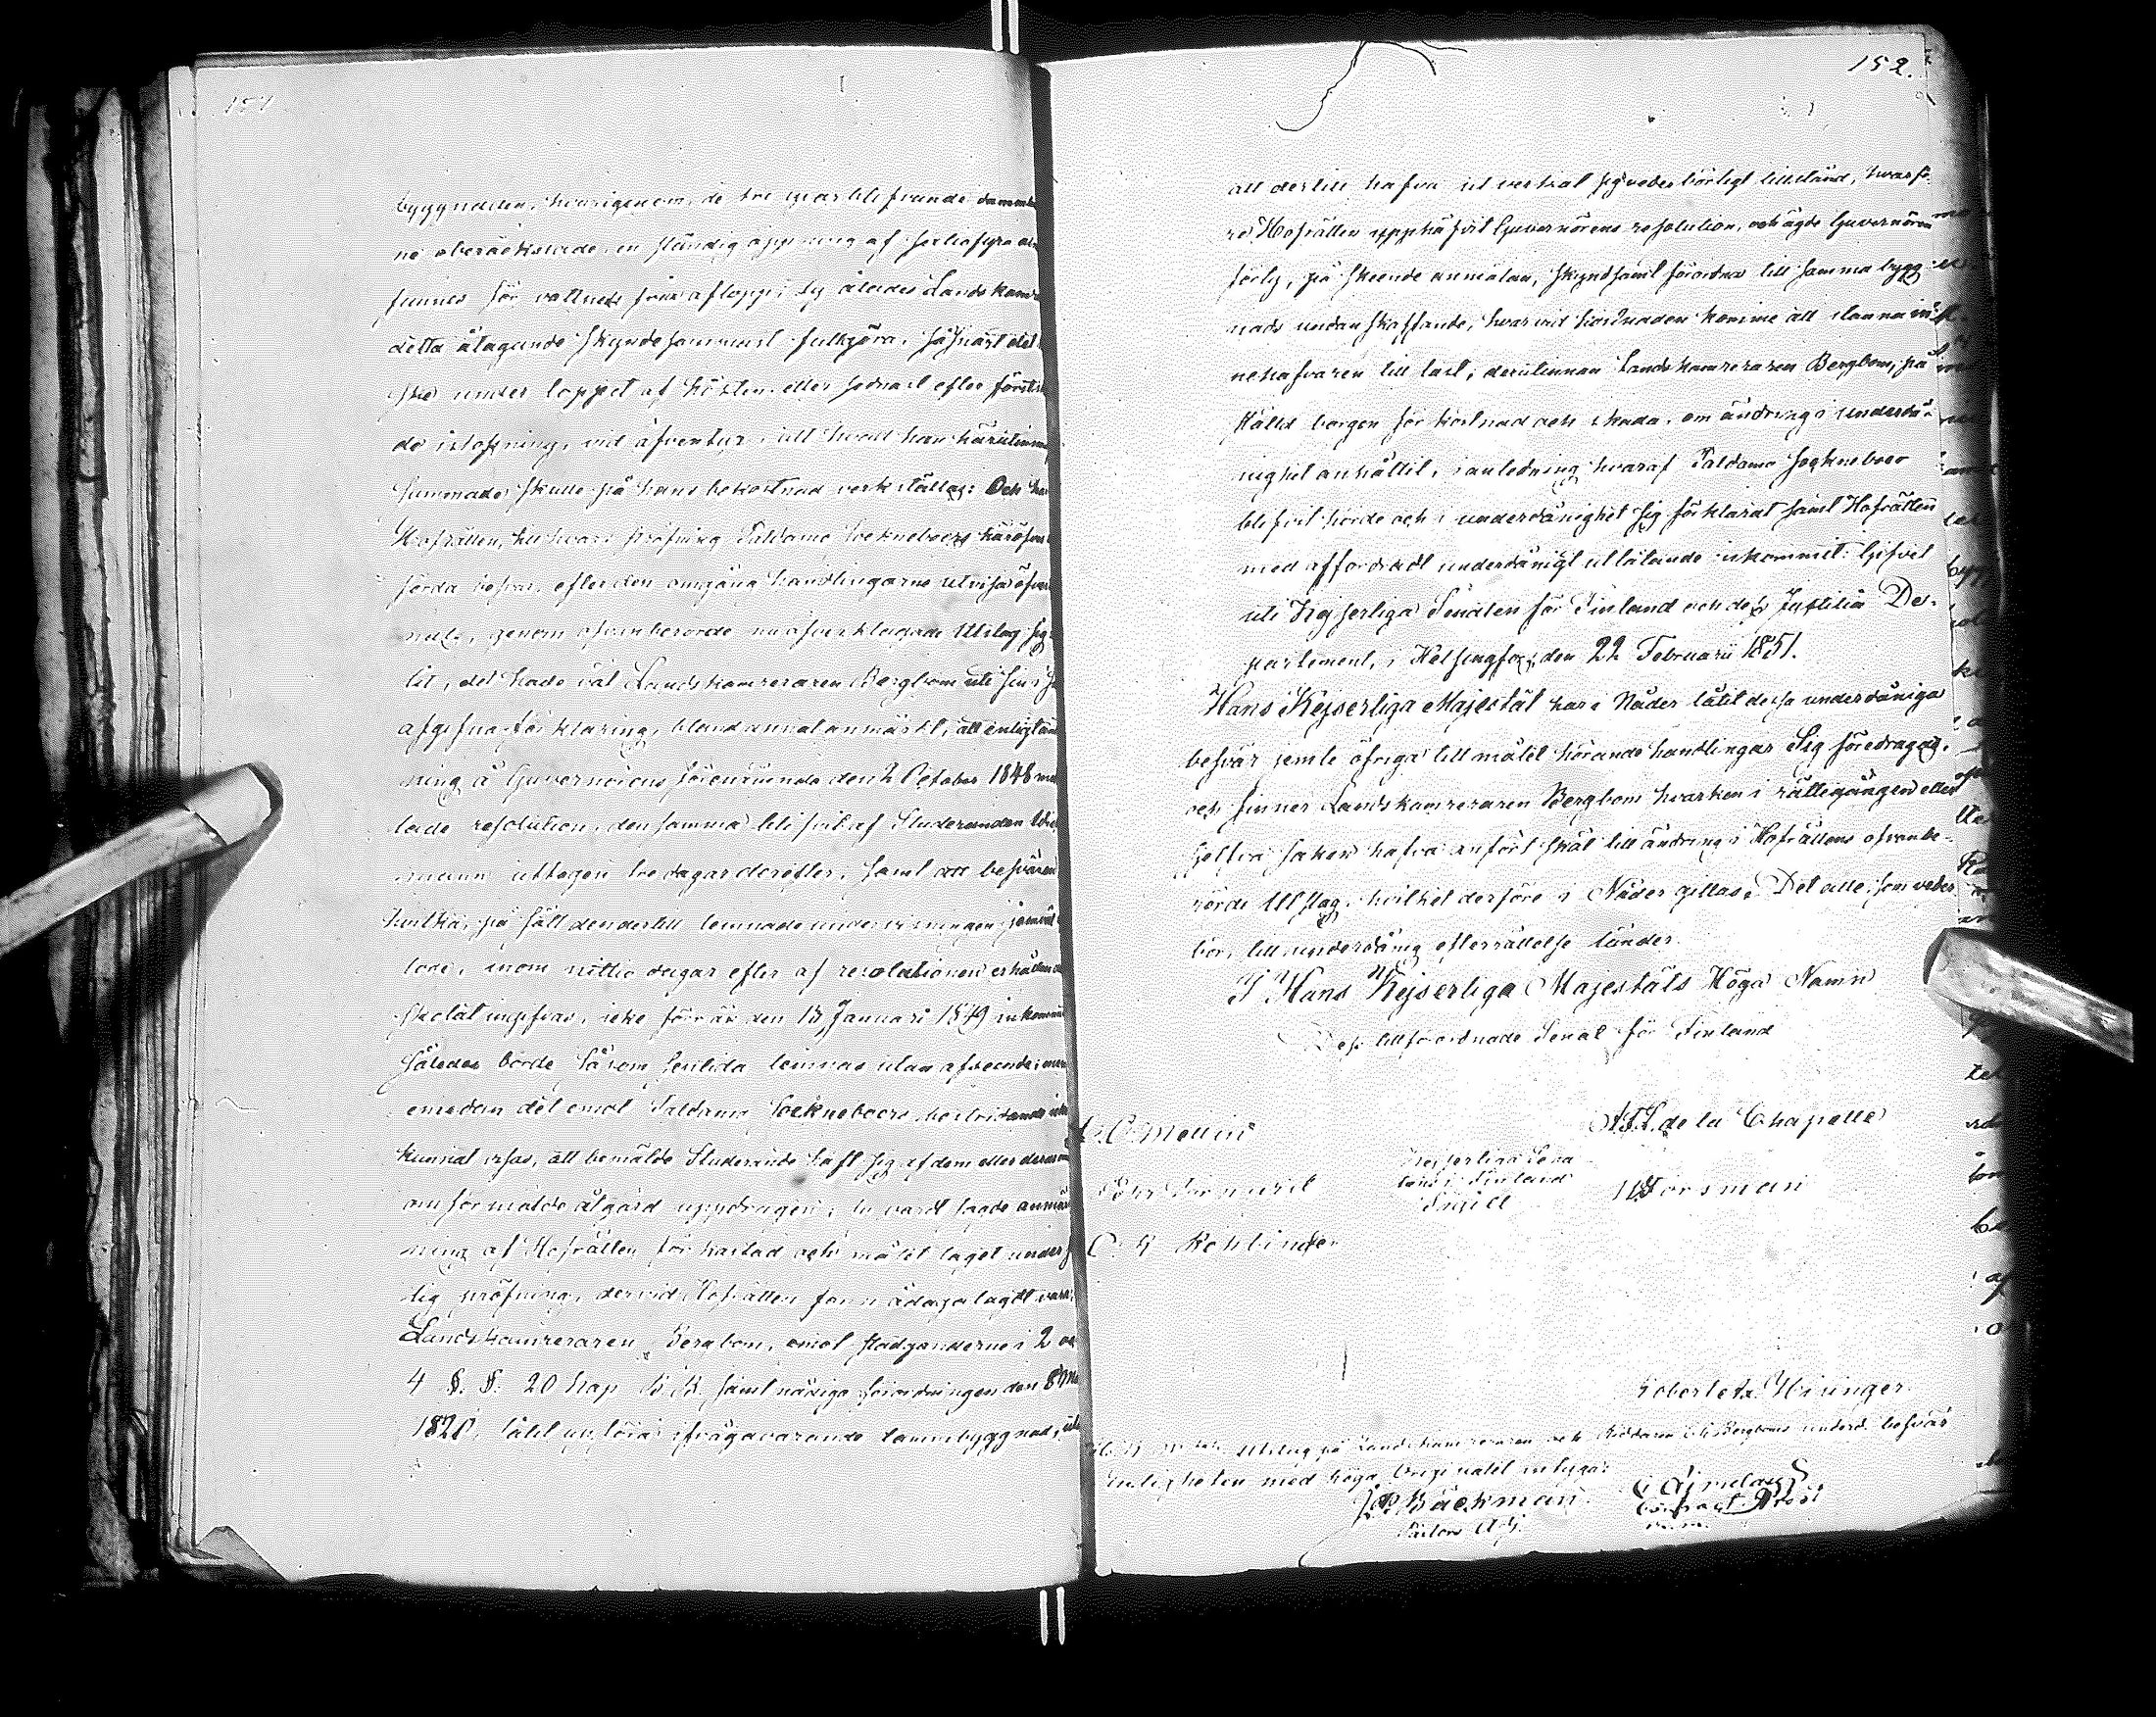 151
byggnaden, hvarigenom, de tre qvarblifvande dammar
ne oberäknade, en ständig öppning af sextiofyra aln
funnes för vattnets fria aflopp; Ty ålades Landskam
detta åtagande skyndesammast fullgöra, såframt det
ske under loppet af hösten eller sednast efter förstk
de islossning, vid äfventyr, att hvad han härutinnan
summade, skulle på hans bekostnad verkställas: Och har
Hofrätten, till hvars pröfning Taldamo Sockneboers häröfver
förda besvär, efter den omgång handlingarne utvisa öfver
nats, genom ofvanberörde nu öfverklagade Utslag sig
lit, det hade väl Landskamreraren Bergbom uti sin
afgifna förklaring, bland annat anmärkt, att enligt
ning å Guvernörens förenämnde den 2 October 1848 med
lade resolution, densamma blifvit af Studeranden
mann uttagen tre dagar derefter, samt att besvären
hvilka, på sätt den dertill lemnade undervisningen jemväl
lade, inom nittio dagar efter af resolutionen erhållen
skolat ingifvas, icke förr än den 15 Januari 1849 inkommit
således borde såsom försutida lemnas utan afseende; men
emedan det emot Taldamo Socknebоers bestridande icke
kunnat visas, att bemälde Studerande haft sig af dem eller deras
omförmälde åtgärd uppdragen; ty vardt sagde anmärk
ning af Hofrätten förkastad och målet taget under
lig pröfning, dervid Hofrätten funnit ådagalagdt vara
Landskamreraren Bergbom, emot stadganderne i 2 och
4 §. §. 20 Kap B. B. samt nådiga förordningen den 8 Ma
1820, låtit uppföra ifrågavarande dammbyggnad,
152.
att dertill hafva utverkat sig vederbörligt tillstånd, hvarfö
re Hofrätten upphäfvit Guvernörens resolution, och ägde Guvernören
förty, på skeende anmälan, skyndsamt förordna till samma bygg
nads undanskaffande, hvarvid kostnaden komme att denna in
nehafvaren till last; derutinnan Landskamreraren Bergbom, på
ställd borgen för kostnad och skada, om ändring i underdå
nighet anhållit, i anledning hvaraf Taldamo Socknеboer
blifvit hörde och i underdånighet sig förklarat samt Hofrätten
med affordradt underdånigt utlåtande inkommit: Gifvet
uti Kejserliga Senaten för Finland och dess Justitiæ De-
partement, i Helsingfors, den 22 Februarii 1851.
Hans Kejserliga Majestät har i Nåder låtit dessa underdåniga
besvär jemte öfriga till målet hörande handlingar Sig föredragas,
och finner Landskamreraren Bergbom hvarken i rättegången eller
sjelfva saken hafva anfört skäl till ändring i Hofrättens ofvanbe-
rörde Utslag, hvilket derföre i Nåder gillas. Det alle, som veder
bör, till underdånig efterrättelse länder.
I Hans Kejserliga Majestäts Höga Namn
Dess tillförordnade Senat för Finland
A. G. Mellin
A. F. L. de la Chapelle
Kejserliga Sena
tens i Finland
Sigill
Forsman
C. G. Rehbinder
Robert Hisinger.
Utslag på Landskamreraren och Riddaren Bergboms underd. besvär
Enligheten med höga Originalet intyga:
Bäckman
Pastors Adj.
C. Ajmelæus
Contract Prost
m.m.